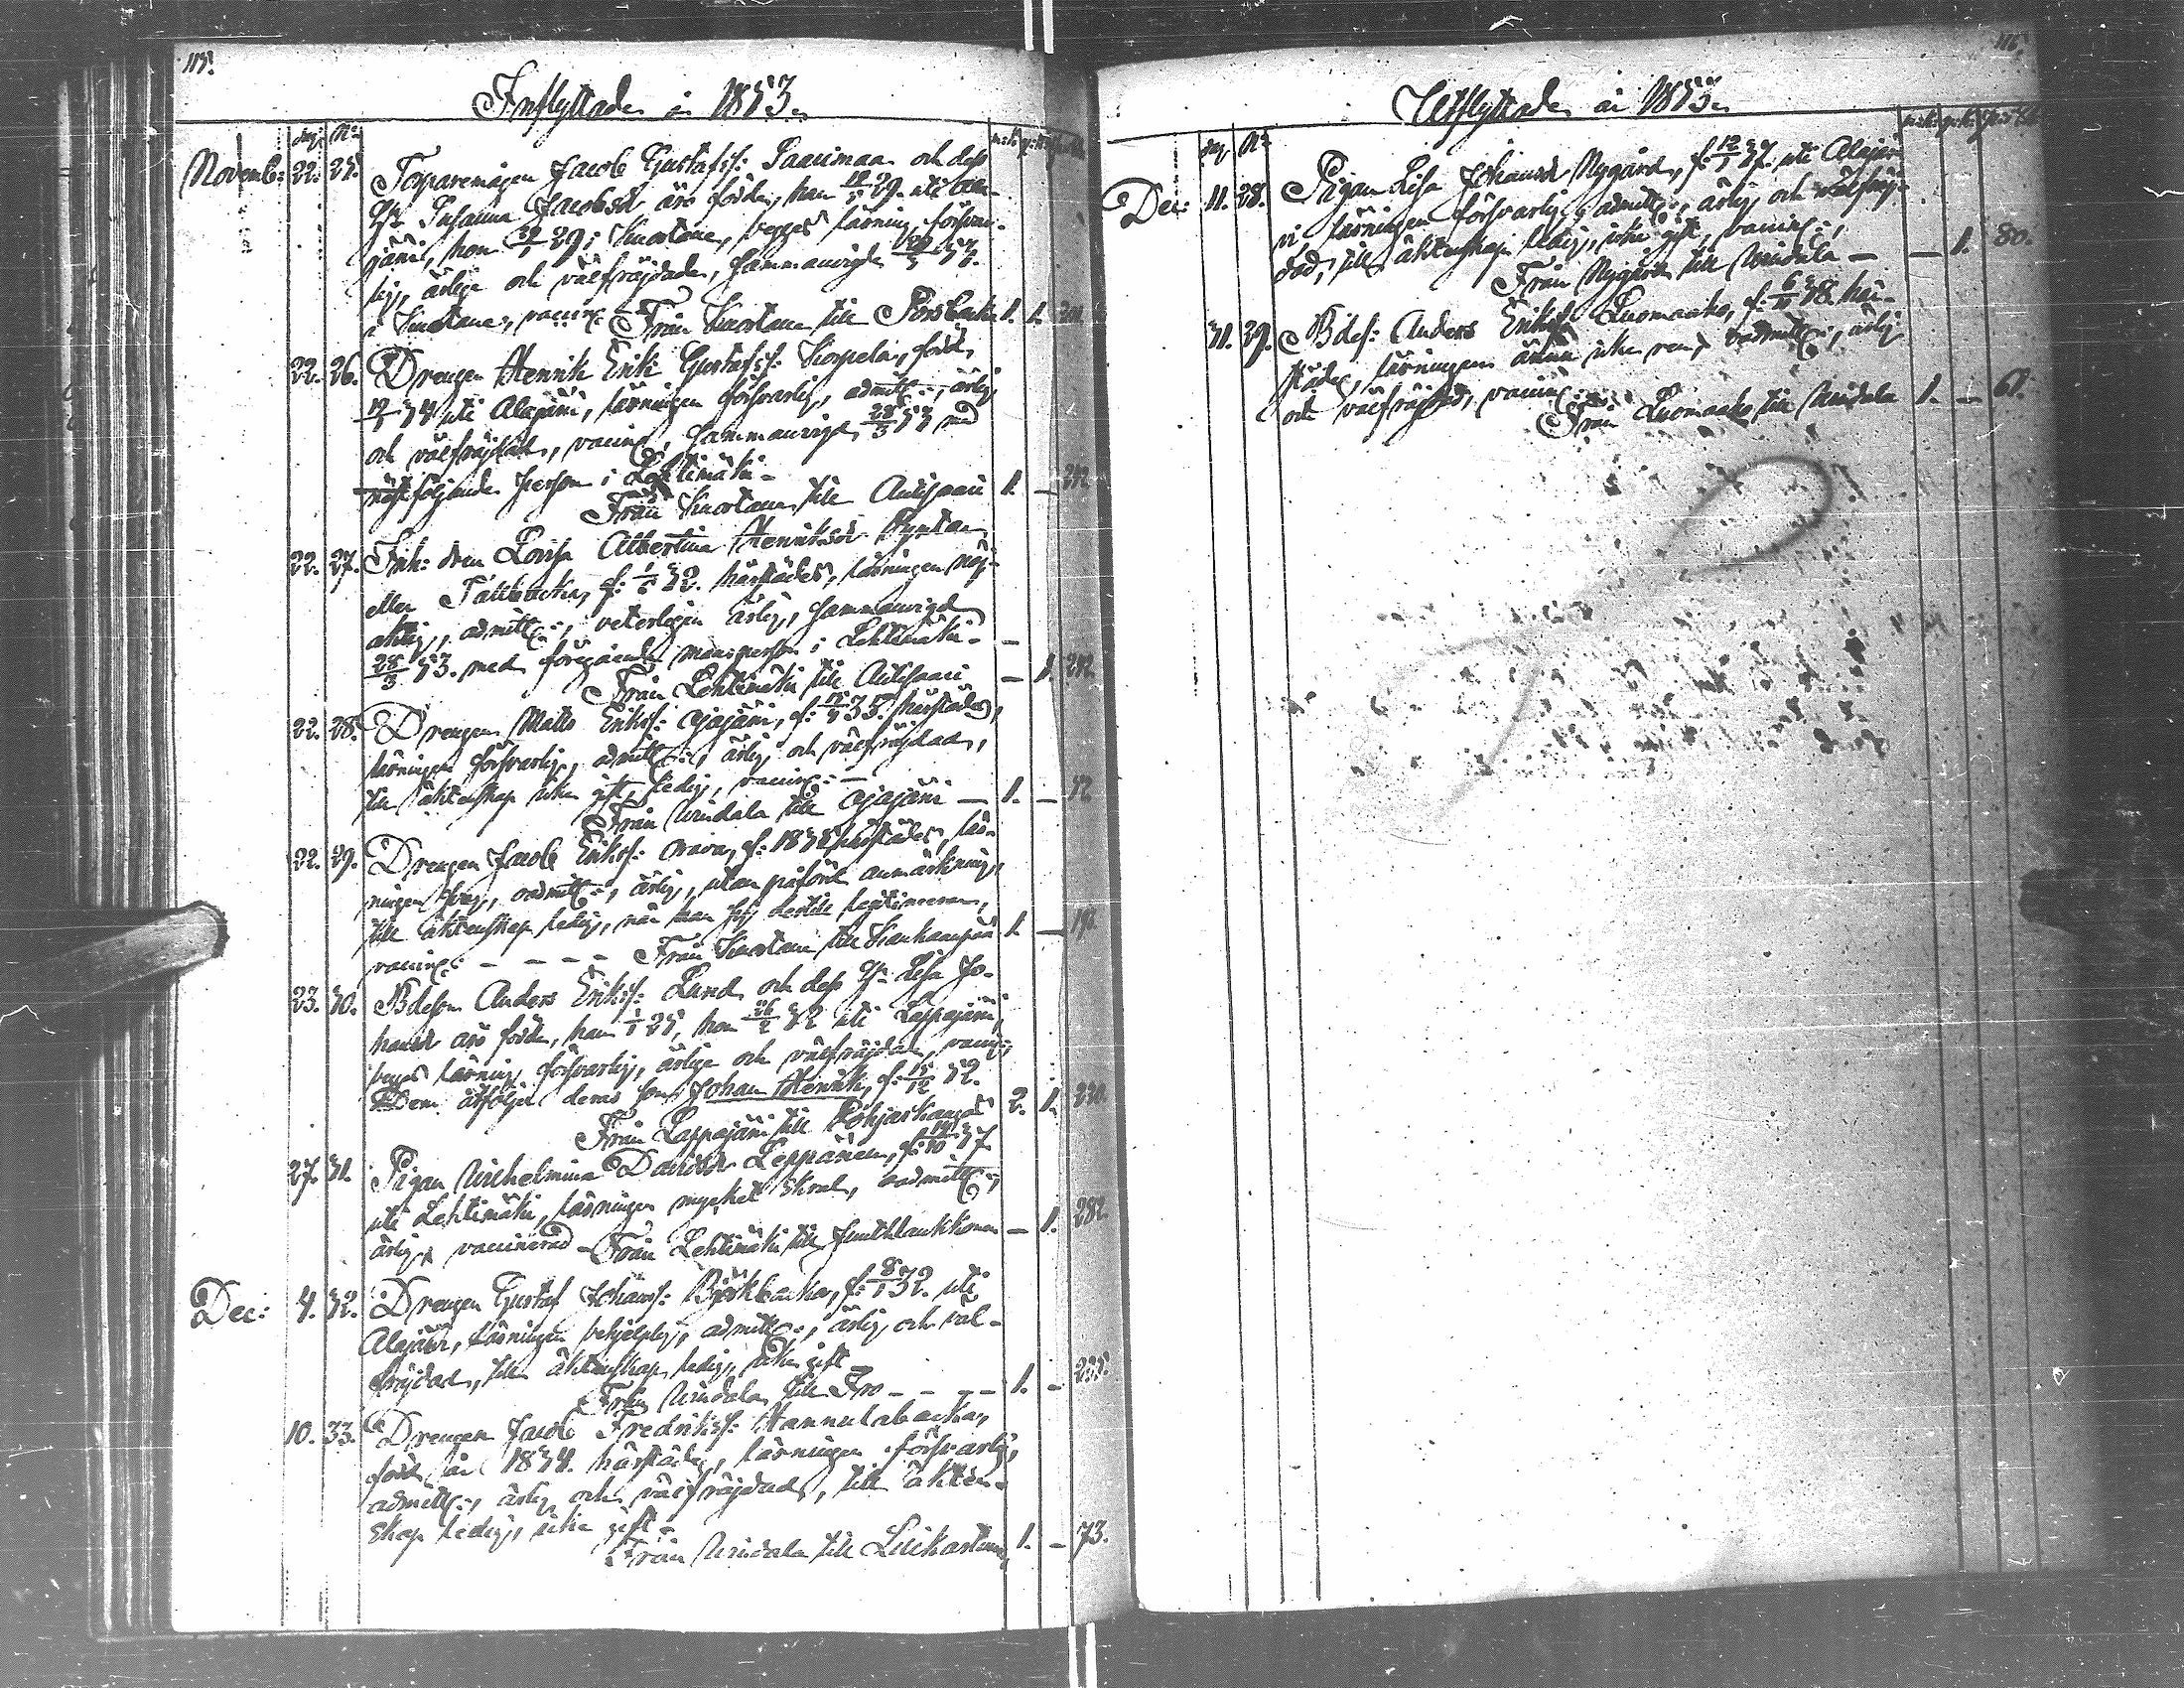 115.
Inflyttade år 1853.
dag. No
Novemb: 22. 25. Torparemågen Jacob Gustafss: Saarimaa och dess
Hu Susanna Jacobsdr äro födde, han 29. uti Ala-
järvi, hon 29 i Kuortane, begges läsning försvar-
lig, ärlige och välfräjdade, sammanvigde 53.
i Kuortane, vaccin:
Från Kuortane till Porsbacka 1. 1.
22. 26. Drengen Henrik Erik Gustafss: Korpela, född
34 uti Alajärvi, läsningen försvarlig, admitt:, ärlig
och välfräjdad, vaccin:, sammanvigd 28/3 53 med
nästföljande person i Lehtimäki -
Från Kuortane till Autisaari 1. - 242
22. 27. Lovisa Albertina Henriksdr
eller Tallbacka, f: 32. härstädes, läsningen nöj-
aktig, admitt:, veterligen ärlig, sammanvigd
28/3 53. med föregående mansperson i Lehtimäki -
Från Lehtimäki till Autisaari - 1. 242
22. 28. Drengen Matts Erikss: Ojajärvi, f: 35. härstädes,
läsningen försvarlig, admitt:, ärlig och välfräjdad,
till äktenskap icke gift, ledig, vaccin: -
Från Windala till Ojajärvi - 1. - 42
22. 29. Drengen Jacob Erikss: Orava, f: härstädes, läs-
ningen svag, oadmitt:, ärlig, utan påförd anmärkning,
till äktenskap ledig, när han sig dertill legitimerar,
vaccin: - - - - Från Kuortane till Kauhanpää 1. -
23. 30. Bdeson Anders Erikss: Lund och dess Hu Lisa Jo-
hansdr äro födde, han 1/1 25, hon 26/2 32 uti Lappajärvi,
begges läsning försvarlig, ärlige och välfräjdade, vaccin:,
Dem åtföljer deras son Johan Henrik, f: 15/12 52.
Från Lappajärvi till Pohjaskangas 2. 1. 230.
27. 31. Pigan Wilhelmina Davidsdr Leppänen, f: 37
uti Lehtimäki, läsningen mycket skral, oadmitt:,
ärlig, vaccinerad - Från Lehtimäki till - 1. 282.
Dec: 4. 32. Drengen Gustaf Johanss: Björkbacka, f: 8/1 32. uti
Alajärvi, läsningen behjelplig, admitt:, ärlig och väl-
fräjdad, till äktenskap ledig, icke gift -
Från Windala till Iro - - - - 1. - 255.
10. 33. Drengen Jacob Fredrikss: Hannulabacka,
född år 1834. härstädes, läsningen försvarlig,
admitt:, ärlig och välfräjdad, till äkten-
skap ledig, icke gift -
Från Windala till 1. - 73.
116.
Utflyttade år 1853.
dag No
Dec: 11. 28. Pigan Lisa Johansdr Nygård, f: 12/1 37. uti Alajär-
vi läsningen försvarlig, admitt:, ärlig och välfräj-
dad, till äktenskap ledig, icke gift, vaccin:,
Från Nygård till Windala - - 1. 80.
31. 29. Bdes: Anders Erikss: Luomaaho, f: 38. här-
städes, läsningen ännu icke ren, oadmitt:, ärlig
och välfräjdad, vaccin:
Från Luomaaho till Windala 1. - 61.